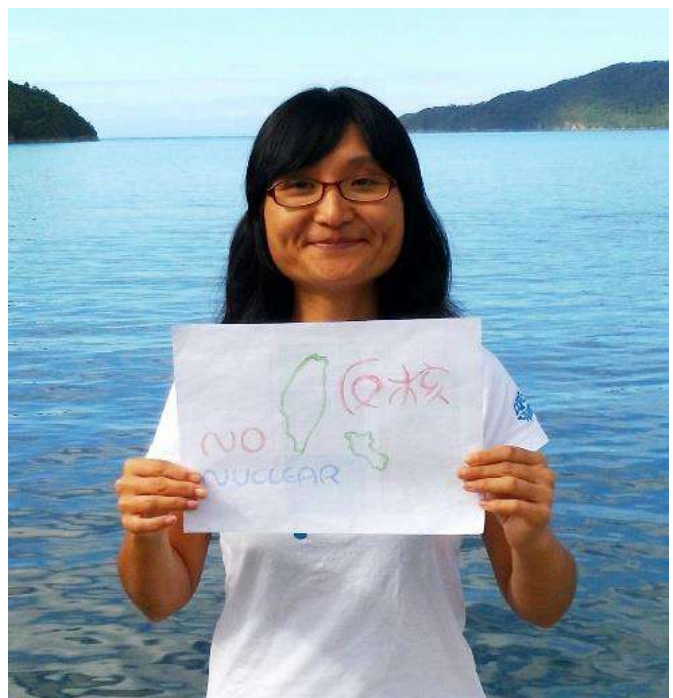 反核
NO
NUCLEAR